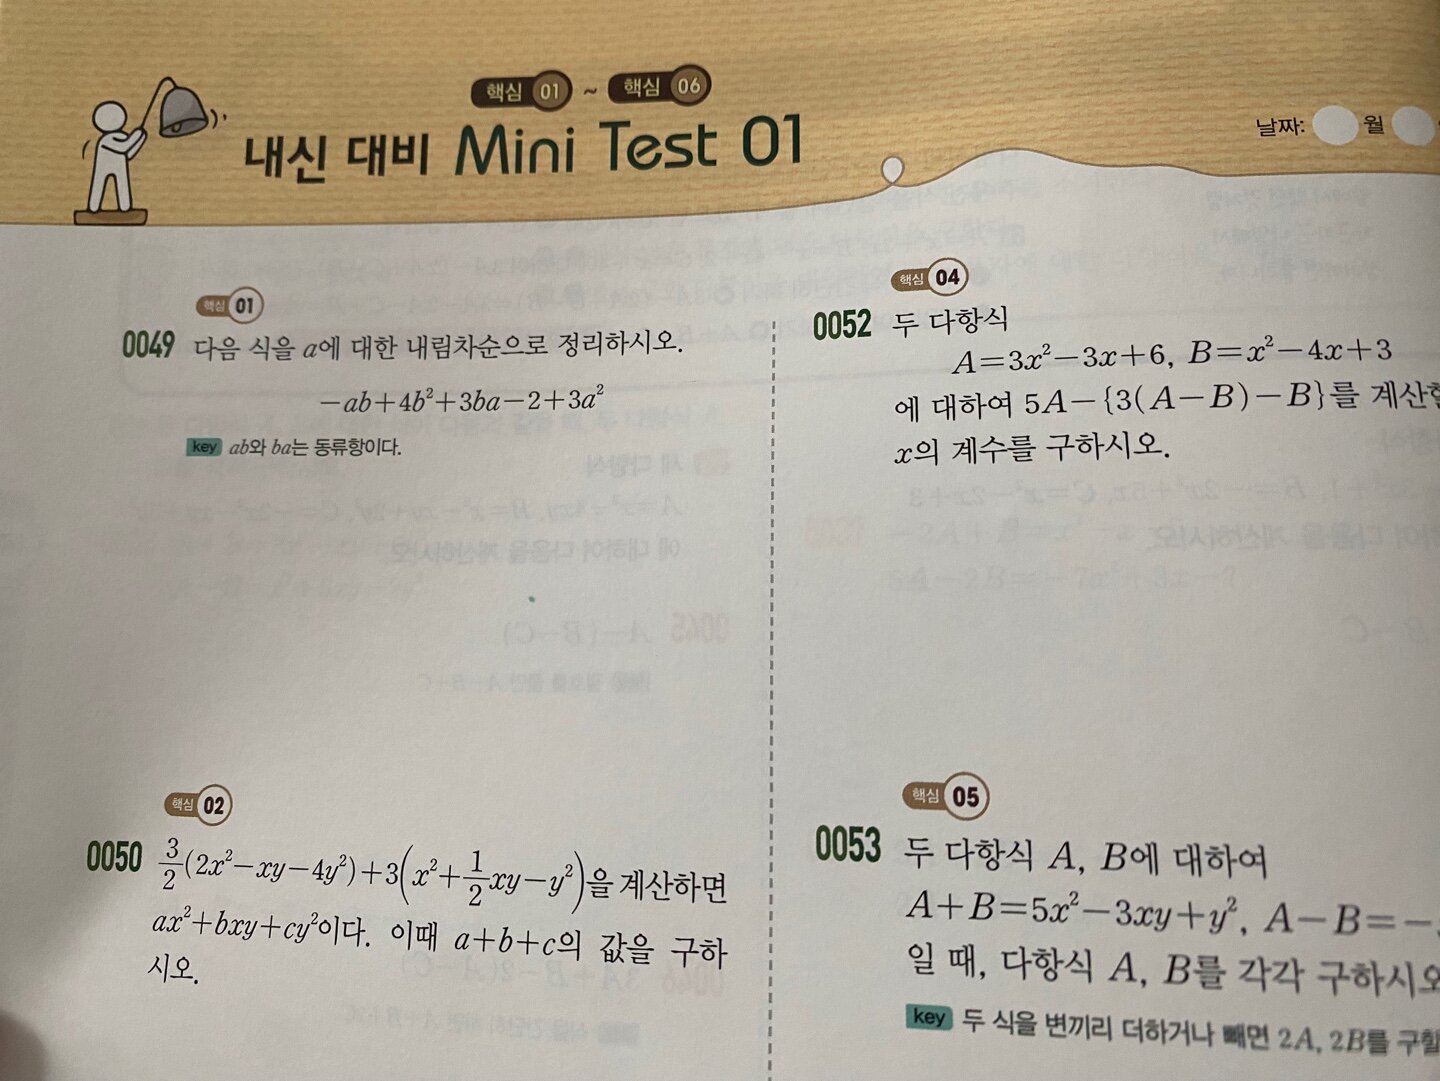 핵심 01 ~ 핵심 06
내신 대비 Mini Test 01
날짜: 월
핵심 01
0049 다음 식을 a에 대한 내림차순으로 정리하시오.
-ab+4b²+3ba-2+3a²
key ab와 ba는 동류항이다.
핵심 02
0050 3/2(2x²-xy-4y²)+3(x²+1/2xy-y²)을 계산하면
ax²+bxy+cy²이다. 이때 a+b+c의 값을 구하
시오.
핵심 04
0052 두 다항식
A=3x²-3x+6, B=x²-4x+3
에 대하여 5A-{3(A-B)-B}를 계산
x의 계수를 구하시오.
핵심 05
0053 두 다항식 A, B에 대하여
A+B=5x²-3xy+y², A-B=-
일 때, 다항식 A, B를 각각 구하시오
key 두 식을 변끼리 더하거나 빼면 2A, 2B를 구할